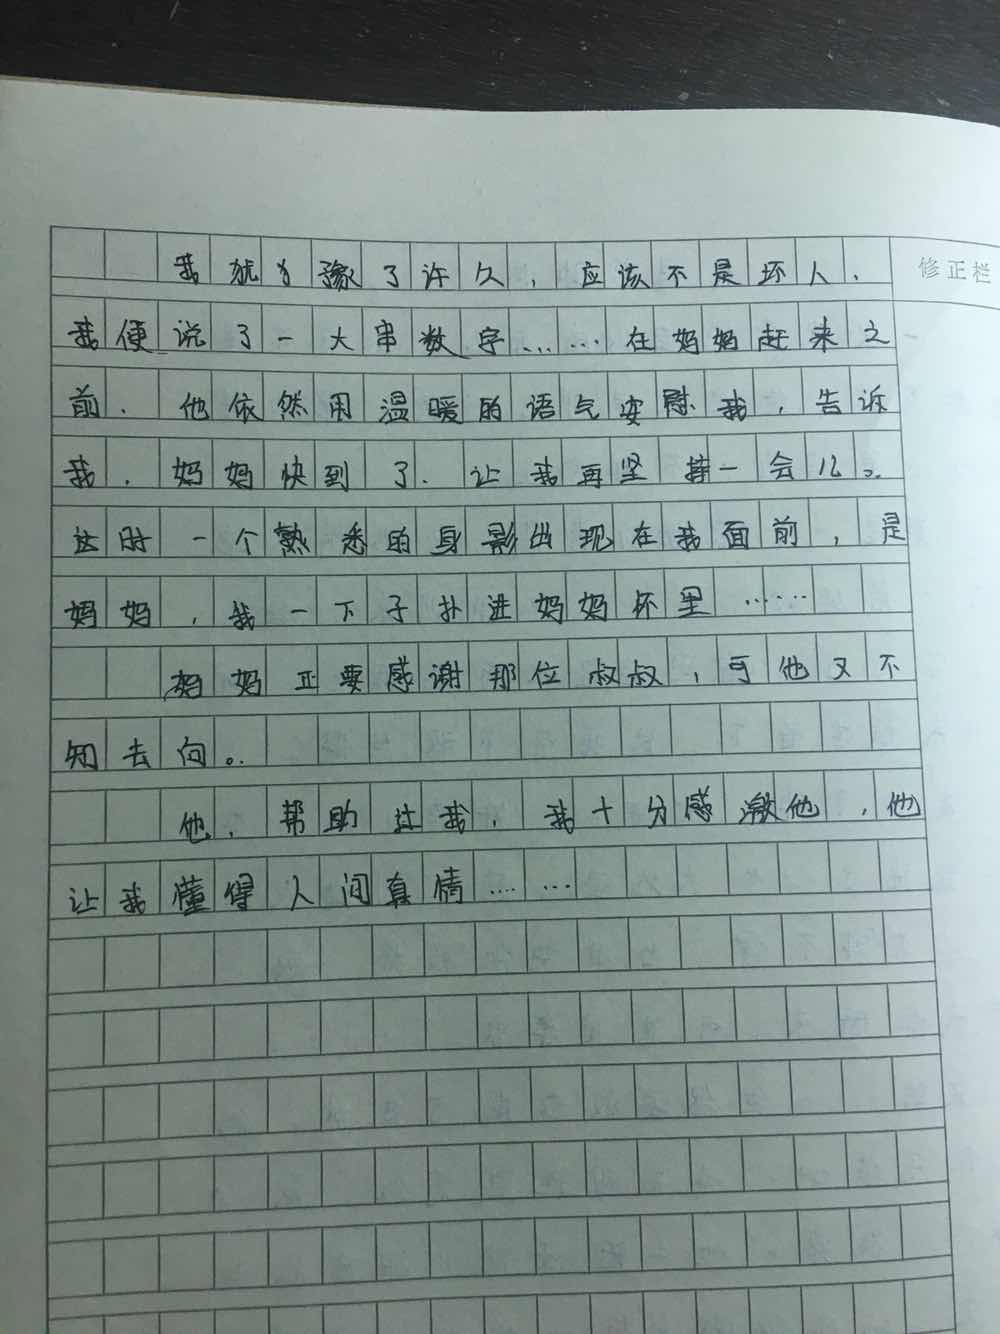 我犹豫了许久，应该不是坏人，
修正栏
我便说了一大串数字……在妈妈赶来之
前，他依然用温暖的语气安慰我，告诉
我，妈妈快到了，让我再坚持一会儿。
这时一个熟悉的身影出现在我面前，是
妈妈，我一下子扑进妈妈怀里……
妈妈正要感谢那位叔叔，可他又不
知去向。
他，帮助过我，我十分感激他，他
让我懂得人间真情……